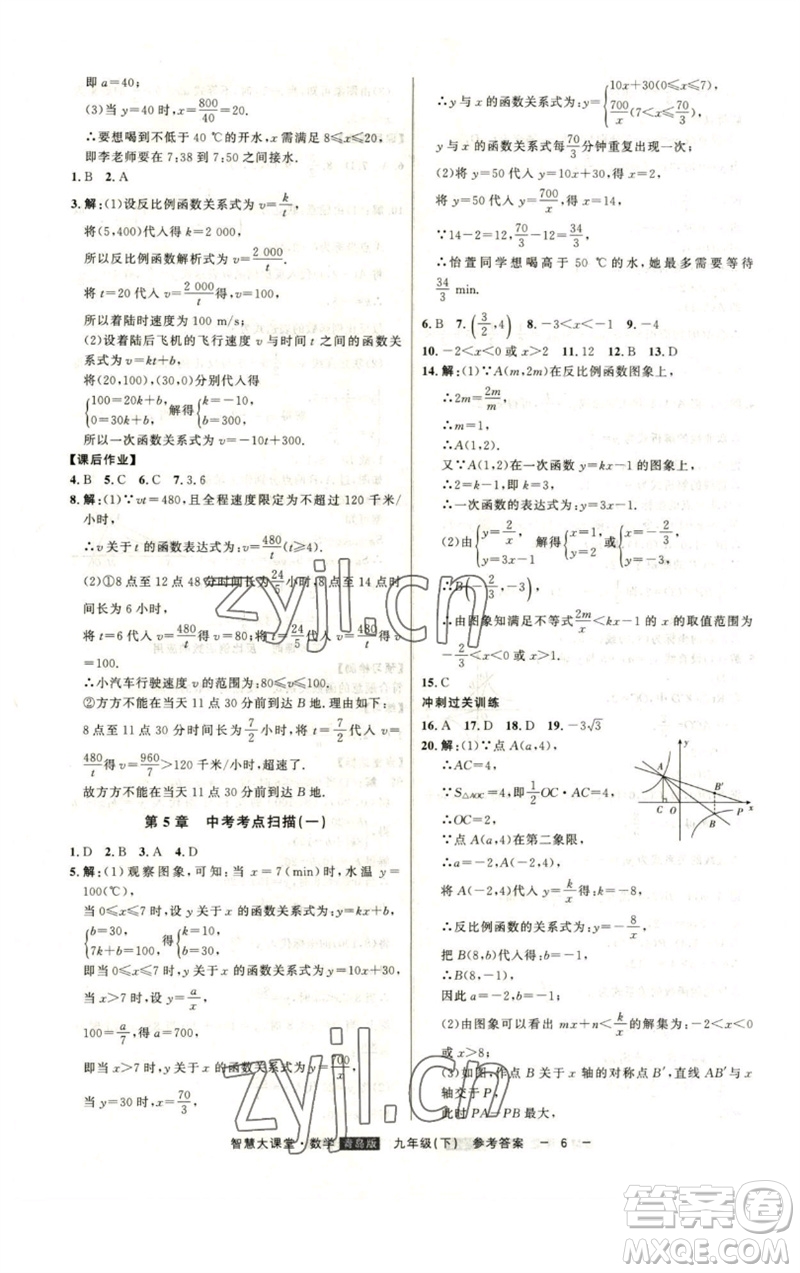 即 a=40;
(3)当 y=40 时,x=800/40=20.
∴要想喝到不低于 40 ℃的开水,x 需满足 8≤x≤20,
即李老师要在 7:38 到 7:50 之间接水.
1. B 2. A
3. 解:(1)设反比例函数关系式为 v=k/t,
将(5,400)代入得 k=2 000,
所以反比例函数解析式为 v=2 000/t.
将 t=20 代入 v=2 000/t 得 v=100,
所以着陆时速度为 100 m/s;
(2)设着陆后飞机的飞行速度 v 与时间 t 之间的函数关
系式为 v=kt+b,
将(20,100),(30,0)分别代入得
{100=20k+b, 0=30k+b, 解得{k=-10, b=300,
所以一次函数关系式为 v=-10t+300.
【课后作业】
4. B 5. C 6. C 7. 3.6
8. 解:(1)∵vt=480,且全程速度限定为不超过 120 千米/
小时,
∴v 关于 t 的函数表达式为 v=480/t(t≥4).
(2)①8 点至 12 点 48 分时间长为24/5小时,8 点至 14 点
时间长为 6 小时,
将 t=6 代入 v=480/t得 v=80;将 t=24/5代入 v=480/t得 v
=100.
∴小汽车行驶速度 v 的范围为:80≤v≤100.
②方方不能在当天 11 点 30 分前到达 B 地.理由如下:
8 点至 11 点 30 分时间长为7/2小时,将 t=7/2代入 v=
480/t得 v=960/7>120 千米/小时,超速了.
故方方不能在当天 11 点 30 分前到达 B 地.
第 5 章 中考考点扫描(一)
1. D 2. B 3. A 4. D
5. 解:(1)观察图象,可知:当 x=7(min)时,水温 y=
100(℃),
当 0≤x≤7 时,设 y 关于 x 的函数关系式为:y=kx+b,
{b=30, 7k+b=100, 得{k=10, b=30,
即当 0≤x≤7 时,y 关于 x 的函数关系式为 y=10x+30,
当 x>7 时,设 y=a/x,
100=a/7,得 a=700,
即当 x>7 时,y 关于 x 的函数关系式为 y=700/x,
当 y=30 时,x=70/3,
∴y 与 x 的函数关系式为:y={10x+30(0≤x≤7), 700/x(7<x≤70/3),
y 与 x 的函数关系式每70/3分钟重复出现一次;
(2)将 y=50 代入 y=10x+30,得 x=2,
将 y=50 代入 y=700/x,得 x=14,
∵14-2=12,70/3-12=34/3,
∴怡萱同学想喝高于 50 ℃的水,她最多需要等待
34/3 min.
6. B 7. (3/2,4) 8. -3<x<-1 9. -4
10. -2<x<0 或 x>2 11. 12 12. B 13. D
14. 解:(1)∵A(m,2m)在反比例函数图象上,
∴2m=2m/m,
∴m=1,
∴A(1,2).
又∵A(1,2)在一次函数 y=kx-1 的图象上,
∴2=k-1,即 k=3,
∴一次函数的表达式为:y=3x-1.
(2)由{y=2/x, y=3x-1 解得{x=1, y=2 或{x=-2/3, y=-3,
∴B(-2/3,-3),
∴由图象知满足不等式2m/x<kx-1 的 x 的取值范围为
-2/3<x<0 或 x>1.
15. C
冲刺过关训练
16. A 17. D 18. D 19. -3√3
20. 解:(1)∵点 A(a,4),
∴AC=4,
∵S△AOC=4,即1/2OC·AC=4,
∴OC=2,
∵点 A(a,4)在第二象限,
∴a=-2,A(-2,4),
将 A(-2,4)代入 y=k/x得:k=-8,
∴反比例函数的表达式为:y=-8/x,
把 B(8,b)代入得:b=-1,
∴B(8,-1).
因此 a=-2,b=-1.
(2)由图象可以看出 mx+n<k/x的解集为:-2<x<0
或 x>8;
(3)如图,作点 B 关于 x 轴的对称点 B′,直线 AB′与 x
轴交于 P,
此时 PA-PB 最大,
y
A
B′
C
O
B
P
x
zyjl.cn
zyjl.cn
智慧大课堂·数学 青岛版 九年级(下) 参考答案 — 6 —
答案圈
MXQE.COM